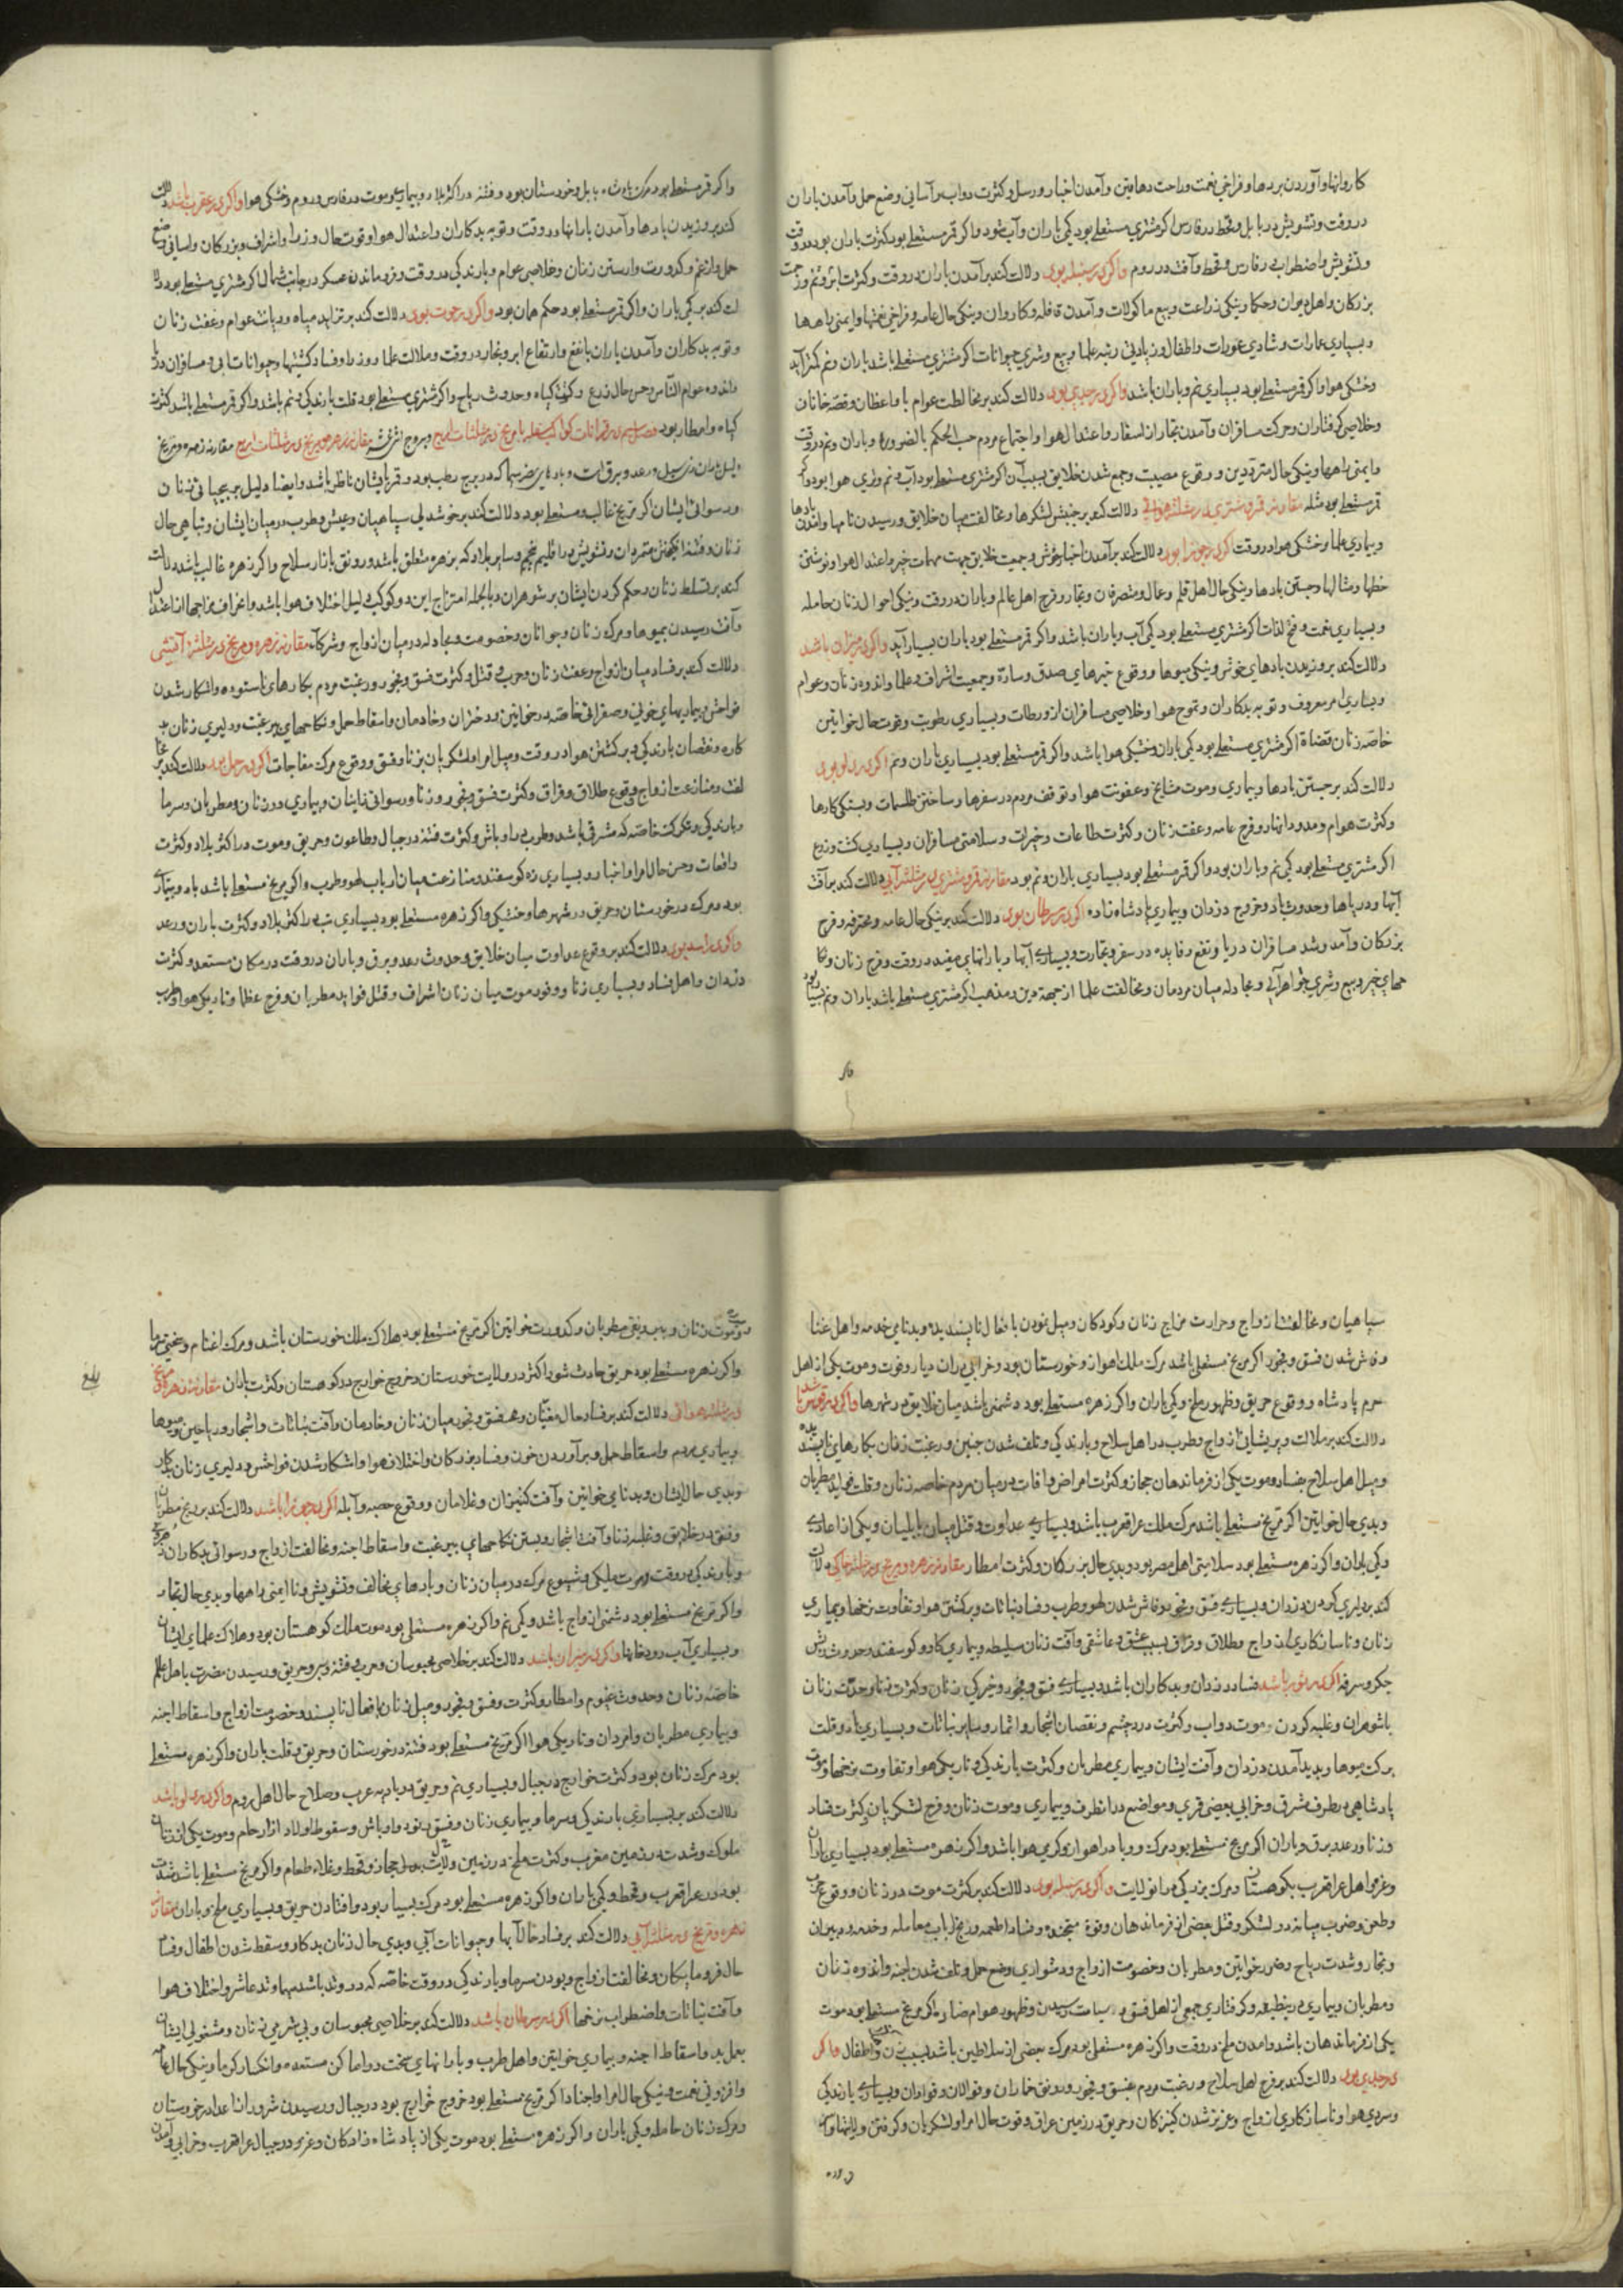 کاروانها و آوردن بردها و فراخی نعمت و راحت دهاقین و آمدن اخبار و رسل و کثرت دواب و آسانی وضع حمل و آمدن باران
در وقت و تشویش در بابل و قحط در فارس اگر مشتری مستعلی بود کمی باران و آب شود و اگر قمر مستعلی بود کثرت باران بود در وقت
و تشویش و اضطراب در فارس و قحط و آفت در روم و اگر در سنبله بود دلالت کند بر آمدن باران در وقت و کثرت ابر و نم
بزرگان و اهل دیوان و حکما و نیکی زراعت و بیع ماکولات و آمدن قافله و کاروان و نیکی حال عامه و فراخی نعمتها و ایمنی راهها
و بسیاری عمارات و شادی عورات و اطفال و زیادتی رتبه علما و بیع و شری حیوانات اگر مشتری مستعلی باشد باران و نم کمتر آید
و خشکی هوا و اگر قمر مستعلی بود بسیاری نم و باران باشد و اگر در جدی بود دلالت کند بر مخالطت عوام با واعظان و قصه خانان
و خلاصی گرفتاران و حرکت مسافران و آمدن تجار از اسفار و اعتدال هوا و اجتماع مردم حسب الحکم بالضروره و باران و نم در وقت
و ایمنی راهها و نیکی حال مترددین و وقوع مصیبت و جمع شدن خلایق بسبب آن اگر مشتری مستعلی بود آب و نم و تری هوا بود و اگر
قمر مستعلی بود مثله مقارنه قمر و مشتری در مثلثه هوائی دلالت کند بر جنبش لشکرها و مخالفت میان خلایق و رسیدن نامها
و بیماری علما و خشکی هوا در وقت اگر در جوزا بود دلالت کند بر آمدن اخبار خوش و جمعیت خلایق بجهت مهمات خیر و اعتدال هوا و نوشتن
خطها و مثالها و جستن بادها و نیکی حال اهل قلم و عمال و متصرفان و تجار و فرح اهل عالم و باران در وقت و نیکی احوال زنان حامله
و بسیاری نعمت و فتح لغات اگر مشتری مستعلی بود کمی آب و باران باشد و اگر قمر مستعلی بود باران بسیار آید و اگر در میزان باشد
دلالت کند بر وزیدن بادهای خوش و نیکی میوها و وقوع خبرهای صدق و سارّه و جمعیت اشراف و علما و اندوه زنان و عوام
و بسیاری امر معروف و توبه بدکاران و تموج هوا و خلاصی مسافران از ورطات و بسیاری رطوبت و قوت حال خواتین
خاصه زنان قضاة اگر مشتری مستعلی بود کمی باران و خشکی هوا باشد و اگر قمر مستعلی بود بسیاری باران و نم اگر در دلو بود
دلالت کند بر جستن بادها و بیماری و موت مشایخ و عفونت هوا و توقف مردم در سفرها و ساختن طلسمات و بستگی کارها
و کثرت هوام و مدّ رودانها و فرح عامه و عفت زنان و کثرت طاعات و خیرات و سلامتی مسافران و بسیاری کشت و زرع
اگر مشتری مستعلی بود کمی نم و باران بود و اگر قمر مستعلی بود بسیاری باران و نم بود مقارنه قمر و مشتری در مثلثه آبی دلالت کند بر آفت
آبها و دریاها و حدوث باد و خروج دزدان و بیماری پادشاه زاده اگر در سرطان بود دلالت کند بر نیکی حال عامه و محترفه و فرح
بزرگان و آمد و شد مسافران دریا و نفع و فایده در سفر و تجارت و بسیاری آبها و بارانهای مفید در وقت و فرح زنان و نکا
حهای خیر و بیع و شری جواهر آبی و مجادله میان مردمان و مخالفت علما از جهة دین و مذهب اگر مشتری مستعلی باشد باران و نم بسیار بود
واکر
و اگر قمر مستعلی بود مرگ پادشاه بابل و خوزستان بود و فتنه در اکثر بلاد و بیماری و موت در فارس و روم و خشکی هوا و اگر در عقرب باشد دلالت
کند بر وزیدن بادها و آمدن بارانها در وقت و توبه بدکاران و اعتدال هوا و قوت حال وزرا و اشراف و بزرگان و آسانی وضع
حمل و از غم و کدورت وارستن زنان و خلاصی عوام و بارندگی در وقت و فرو ماندن عسکر در جانب شمال اگر مشتری مستعلی بود دلا
لت کند بر کمی باران و اگر قمر مستعلی بود حکم همان بود و اگر در حوت بود دلالت کند بر تزاید میاه و دیانت عوام و عفت زنان
و توبه بدکاران و آمدن باران با نفع و ارتفاع ابر و بخار در وقت و ملالت علما و وزرا و فساد کشتیها و حیوانات آبی و مسافران دریا
و اندوه عوام الناس و حسن حال زرع و کثرت گیاه و حدوث ریاح و اگر مشتری مستعلی بود قلت بارندگی و نم باشد و اگر قمر مستعلی باشد کثرت
گیاه و امطار بود فصل در قرانات کواکب سفلیه با مریخ در مثلثات اربع و بروج اثنی عشر مقارنه زهره و مریخ در مثلثات اربع مقارنه زهره و مریخ
دلیل باران و سیل و رعد و برق است و بادهای مضر سیما که در برج رطب بود و قمر بایشان ناظر باشد و ایضا دلیل بر بیحیائی زنان
و رسوائی ایشان اگر مریخ غالب و مستعلی بود دلالت کند بر خوشدلی سپاهیان و عیش و طرب در میان ایشان و تباهی حال
زنان و فتنه انگیختن متمردان و تشویش در اقلیم پنجم و سایر بلاد که بزهره متعلق باشد و رونق بازار سلاح و اگر زهره غالب باشد دلالت
کند بر تسلط زنان و حکم کردن ایشان بر شوهران و بالجمله امتزاج این دو کوکب دلیل اختلاف هوا باشد و انحراف مزاجها از اعتدال
و آفت رسیدن بمیوها و مرگ زنان و جوانان و خصومت و مجادله در میان ازواج و شرکا مقارنه زهره و مریخ در مثلثه آتشی
دلالت کند بر فساد میان ازواج و عفت زنان و حرب و قتل و کثرت فسق و فجور و رغبت مردم بکارهای ناستوده و آشکار شدن
فواحش و بیماریهای خونی و صفرائی خاصه در خواتین و دختران و خادمان و اسقاط حمل و نکاحهای بیرغبت و دلیری زنان
کاره و نقصان بارندگی و برگشتن هوا در وقت و میل امرا و لشکریان بزنا و فسق و وقوع مرگ مفاجات اگر در حمل بود دلالت کند بر مخا
لفت و منازعت ازواج و وقوع طلاق و فراق و کثرت فسق و فجور و زنا و رسوائی زانیان و بیماری در زنان و مطربان و سرما
و بارندگی خاصه که مشرقی باشد و طرب در اوباش و کثرت فتنه در جبال و طاعون و حریق و موت در اکثر بلاد و کثرت
واقعات و حسن حال امرا و اخبار و بسیاری زه گوسفند و منازعت میان ارباب لهو و طرب و اگر مریخ مستعلی باشد باد و بیماری
بود و مرگ در خورستان و حریق در شهرها و خشکی و اگر زهره مستعلی بود بسیاری تب در اکثر بلاد و کثرت باران و رعد
و اگر در اسد بود دلالت کند بر وقوع عداوت میان خلایق و حدوث رعد و برق و باران در وقت در مکان مستعد و کثرت
دزدان و اهل فساد و بسیاری زنا و وفور موت میان زنان اشراف و قتل فواید مطربان و فرح عظما و تاریکی هوا و طرب
سپاهیان و مخالفت ازواج و حرارت مزاج زنان و کودکان و میل نمودن بافعال ناپسندیده و بدنامی خدمه و اهل غنا
و فاش شدن فسق و فجور اگر مریخ مستعلی باشد مرگ ملک اهواز و خورستان بود و خرابی در آن دیار و فوت و موت یکی از اهل
حرم پادشاه و وقوع حریق و ظهور ملخ و کمی باران و اگر زهره مستعلی بود دشمنی باشد میان خلایق در شهرها و اگر در قوس باشد
دلالت کند بر ملالت و پریشانی ازواج و طرب در اهل سلاح و بارندگی و تلف شدن جنین و رغبت زنان بکارهای ناپسندیده
و میل اهل سلاح بفساد و موت یکی از فرماندهان حجاز و کثرت امراض و آفات در میان مردم خاصه زنان و قلت فواید مطربان
و بدی حال خواتین اگر مریخ مستعلی باشد مرگ ملک عراق عرب باشد و بسیاری عداوت و قتل میان بابلیان و یکی از اعادی
و کمی باران و اگر زهره مستعلی بود سلامتی اهل مصر بود و بدی حال بزرگان و کثرت امطار مقارنه زهره و مریخ در مثلثه خاکی دلالت
کند بر دلیری کردن دزدان و بسیاری فسق و فجور و فاش شدن لهو و طرب و فساد نباتات و برگشتن هوا و تفاوت نرخها و بیماری
زنان و ناسازکاری ازواج و طلاق و فراق بسبب عشق و عاشقی و آفت زنان سلیطه و بیماری گاو و گوسفند و حدوث ریش
جگر و سرفه اگر در ثور باشد فساد دزدان و بدکاران باشد و بسیاری فسق و فجور و خیرگی زنان و کثرت زنا و حدّت زنان
با شوهران و غلبه کردن و موت دواب و کثرت درد چشم و نقصان اشجار و اثمار و سایر نباتات و بسیاری باد و قلت
برکت میوها و پدید آمدن دزدان و آفت ایشان و بیماری مطربان و کثرت بارندگی و تاریکی هوا و تفاوت نرخها و موت
پادشاهی بطرف مشرق و خرابی بعضی قری و مواضع در آنطرف و بیماری و موت زنان و فرح لشکریان و کثرت فساد
و زنا و رعد و برق و باران اگر مریخ مستعلی بود مرگ و وبا در اهواز و گرمی هوا باشد و اگر زهره مستعلی بود بسیاری باران
و عزم اهل عراق عرب بکوهستان و مرگ بزرگی در آنولایت و اگر در سنبله بود دلالت کند بر کثرت موت در زنان و وقوع حرب
و طعن و ضرب میانه دو لشکر و قتل بعضی از فرماندهان و فساد اطعمه و رنج ارباب معامله و خدم و دبیران
و تجار و شدت ریاح و ضرر خواتین و مطربان و خصومت ازواج و دشواری وضع حمل و تلف شدن اجنه و اندوه زنان
و مطربان و بیماری و گرفتاری جمعی از اهل فسق و رسیدن و ظهور هوام ضاره اگر مریخ مستعلی بود موت
یکی از فرماندهان باشد و آمدن ملخ در وقت و اگر زهره مستعلی بود مرگ بعضی از سلاطین باشد بسبب زن و اطفال و اگر
در جدی بود دلالت کند بر فرح اهل سلاح و رغبت مردم بفسق و فجور و رونق خماران و قوالان و قوادان و بسیاری بارندگی
و سردی هوا و ناسازکاری ازواج و عزیز شدن کنیزکان و حریق در زمین عراق و قوت حال امرا و لشکریان و گرفتن ولایتها
و موت زنان و بی رونقی مطربان و کدورت خواتین اگر مریخ مستعلی بود هلاک ملک خورستان باشد و مرگ اغنام و سختی سرما
و اگر زهره مستعلی بود حریق حادث شود اکثر در ولایت خورستان و خروج خوارج در کوهستان و کثرت باران مقارنه زهره و مریخ
در مثلثه هوائی دلالت کند بر فساد حال مغنیان و همه فسق و فجور میان زنان و خادمان و آفت نباتات و اشجار و ریاحین و میوها
و بیماری مردم و اسقاط حمل و برآوردن خون و فساد بزرگان و اختلاف هوا و آشکار شدن فواحش و دلیری زنان بدکار
و بدی حال ایشان و بدنامی خواتین و آفت کنیزان و غلامان و وقوع حصبه و آبله اگر در جوزا باشد دلالت کند بر رنج مطربان
و فسق در خلایق و غلبه زنا و آفت اشجار و بستن نکاحهای بیرغبت و اسقاط اجنه و مخالفت ازواج و رسوائی بدکاران
و بارندگی در وقت و موت ملکی و شیوع مرگ در میان زنان و بادهای مخالف و تشویش و ناایمنی راهها و بدی حال تجار
و اگر مریخ مستعلی بود دشمنی ازواج باشد و کمی نم و اگر زهره مستعلی بود موت ملک کوهستان بود و هلاک علمای ایشان
و بسیاری آب رودخانها و اگر در میزان باشد دلالت کند بر خلاصی محبوسان و حرب و فتنه و حریق و رسیدن مضرت باهل علم
خاصه زنان و حدوث غیوم و امطار و کثرت فسق و فجور و میل زنان بافعال ناپسند و خصومت ازواج و اسقاط اجنه
و بیماری مطربان و امردان و تاریکی هوا اگر مریخ مستعلی بود فتنه در خورستان و حریق و قلت باران و اگر زهره مستعلی
بود مرگ زنان بود و کثرت خوارج در جبال و بسیاری نم و حریق در بادیه عرب و صلاح حال اهل روم و اگر در دلو باشد
دلالت کند بر بسیاری بارندگی و سرما و بیماری زنان و فسق و اوباش و سقوط اولاد از ارحام و موت یکی از زنان
ملوک و شدت در زمین مغرب و کثرت ملخ در زمین حجاز و قحط و غلاء طعام و اگر مریخ مستعلی باشد شدت
بود در عراق عرب و قحط و کمی باران و اگر زهره مستعلی بود مرگ بسیار بود و افتادن حریق و بسیاری ملخ و باران مقارنه
زهره و مریخ در مثلثه آبی دلالت کند بر فساد حال آبها و حیوانات آبی و بدی حال زنان بدکار و سقط شدن اطفال و فساد
حال فرومایگان و مخالفت ازواج و بودن سرما و بارندگی در وقت خاصه که در وتد باشد سیما وتد عاشر و اختلاف هوا
و آفت نباتات و اضطراب نرخها اگر در سرطان باشد دلالت کند بر خلاصی محبوسان و بی شرمی زنان و مشغولی ایشان
بعمل بد و اسقاط اجنه و بیماری خواتین و اهل طرب و بارانهای سخت در اماکن مستعده و انکسار گرما و نیکی حال عامه
و افزونی نعمت و نیکی حال امرا و اجناد اگر مریخ مستعلی بود خروج خوارج بود در جبال و رسیدن شرور از اعدا در خورستان
و مرگ زنان حامله و کمی باران و اگر زهره مستعلی بود موت یکی از پادشاه زادگان و عزیز در جبال عراق عرب و خرابی و آمدن
بلغ